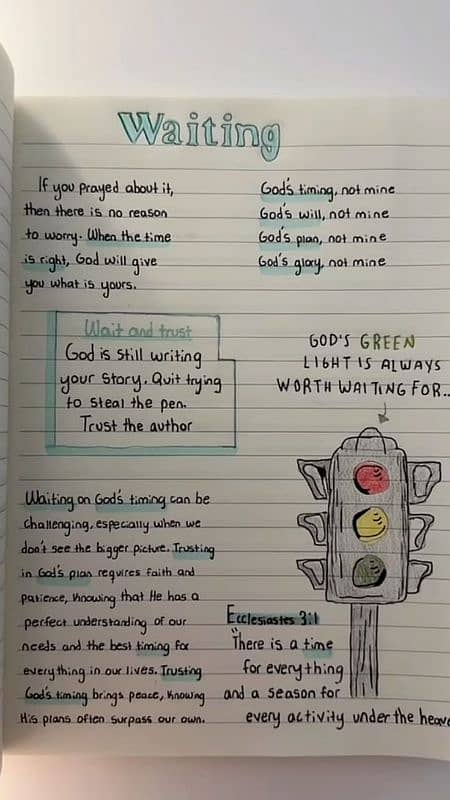 Waiting
If you prayed about it,
then there is no reason
to worry. When the time
is right, God will give
you what is yours.
God's timing, not mine
God's will, not mine
God's plan, not mine
God's glory, not mine
Wait and trust
God is still writing
your story. Quit trying
to steal the pen.
Trust the author
GOD'S GREEN
LIGHT IS ALWAYS
WORTH WAITING FOR..
Waiting on God's timing can be
challenging, especially when we
don't see the bigger picture. Trusting
in God's plan requires faith and
patience, knowing that He has a
perfect understanding of our
needs and the best timing for
everything in our lives. Trusting
God's timing brings peace, knowing
His plans often surpass our own.
Ecclesiastes 3:1
"There is a time
for everything
and a season for
every activity under the heave